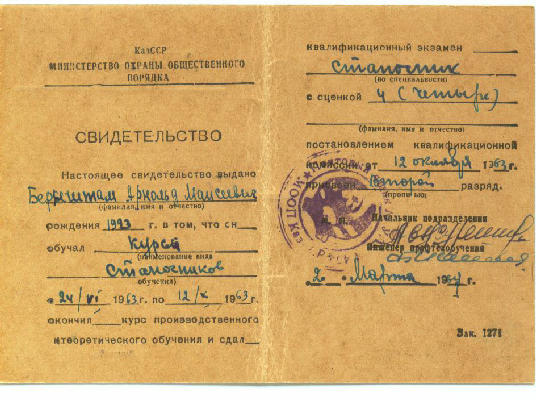 КазССР
МИНИСТЕРСТВО ОХРАНЫ ОБЩЕСТВЕННОГО
ПОРЯДКА
СВИДЕТЕЛЬСТВО
Настоящее свидетельство выдано
(фамилия, имя и отчество)
рождения г. в том, что он
обучал курсы
(наименование вида
станочников
обучения)
с 24/VI 1963 г. по 12/X 1963 г.
окончил курс производственного
и теоретического обучения и сдал
квалификационный экзамен
станочник
(по специальности)
с оценкой 4 (четыре)
(фамилия, имя и отчество)
постановлением квалификационной
от 12 октября 1963 г.
второй разряд.
(прописью)
Начальник подразделения
Инженер профтехобучения
2 Марта г.
Зак. 1271